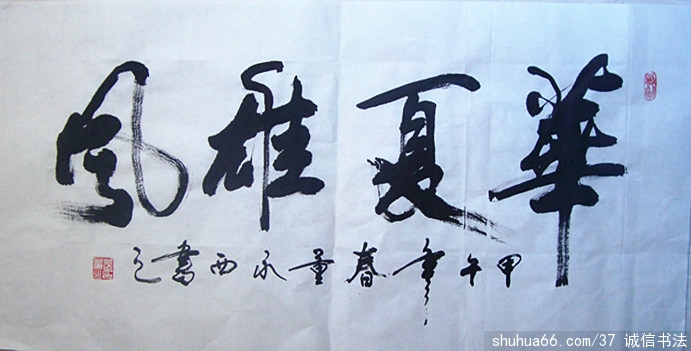 華夏雄風
甲午年春量永西書之
shuhua66.com/37 诚信书法